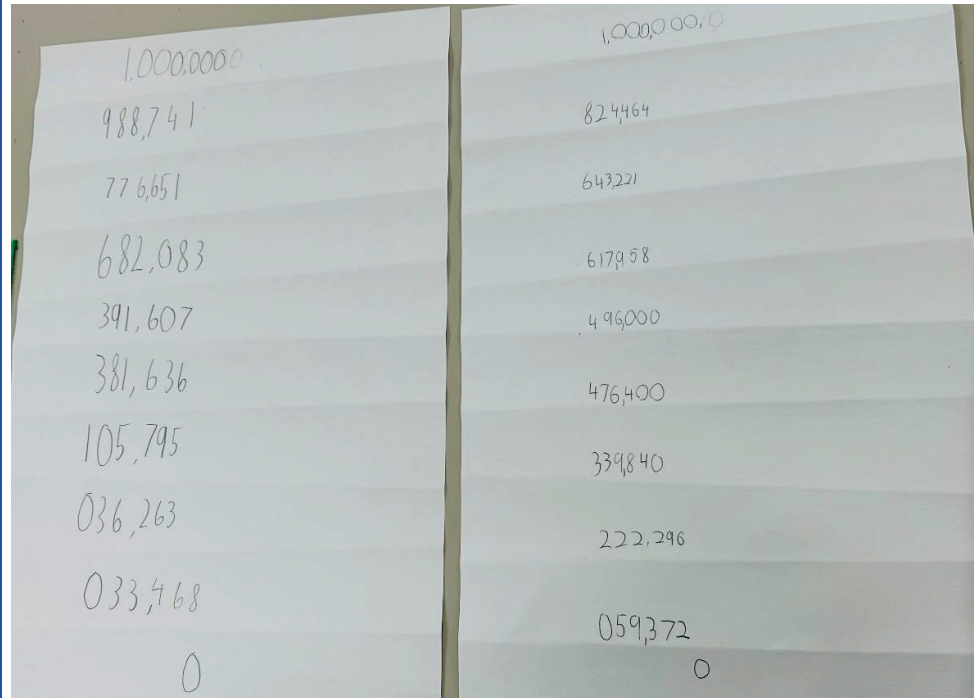 1,000,0000
988,741
776,651
682,083
391,607
381,636
105,795
036,263
033,468
0
1,000,000,0
824,464
643,221
617,958
496,000
476,400
339,840
222,296
059,372
0